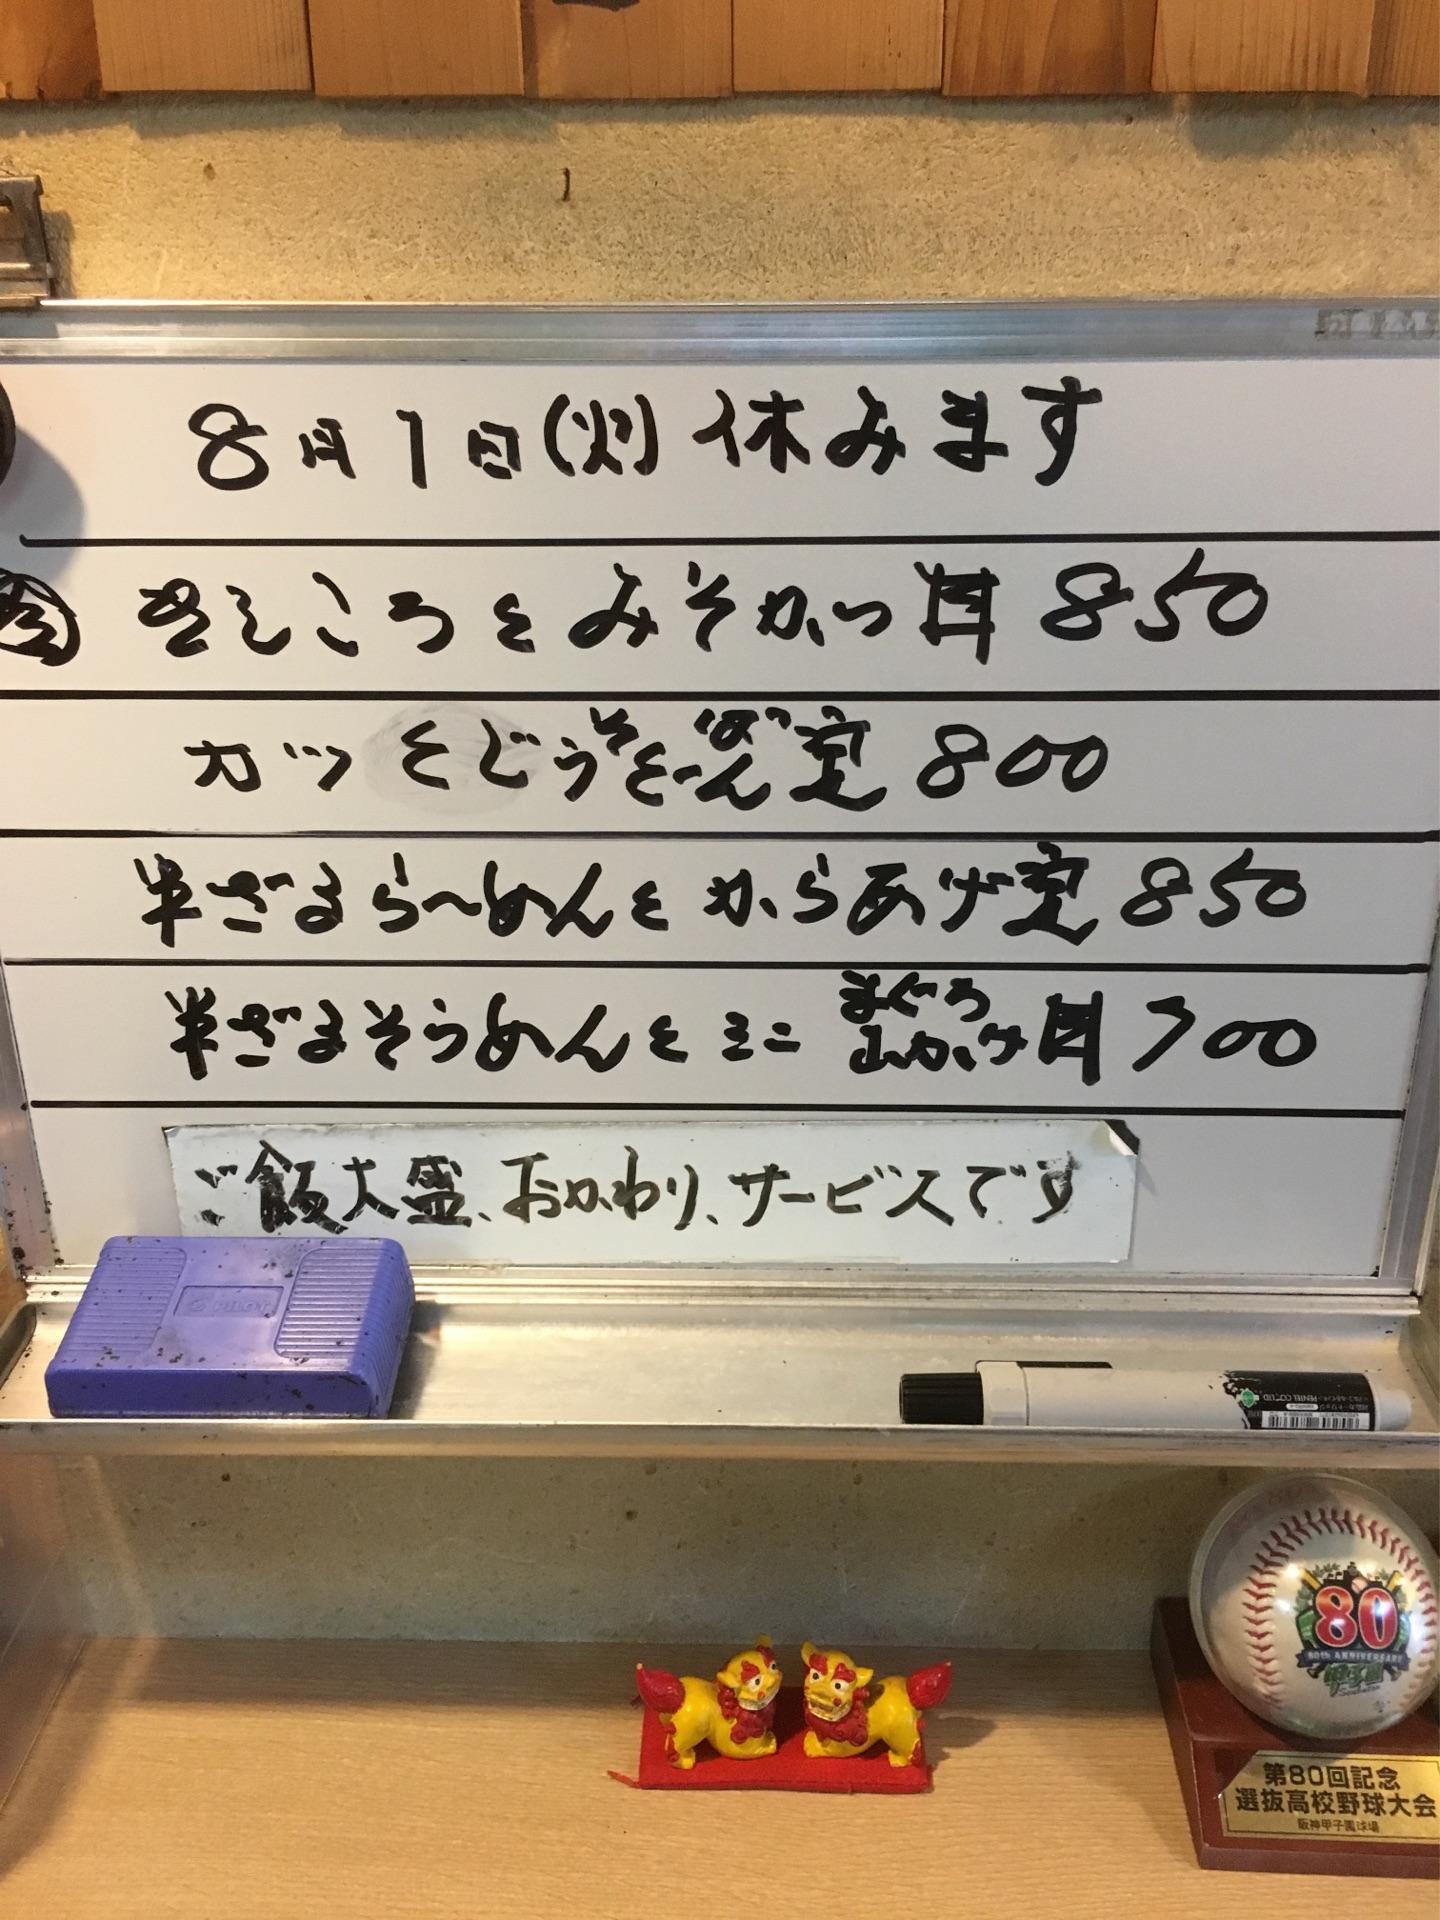 8月1日(火)休みます
きしころとみそかつ丼 850
カツとじうそとーばん定 800
半ざるら〜めんとからあげ定 850
半ざるそうめんとミニまぐろ山かけ丼 700
ご飯大盛、おかわり、サービスです
PILOT
PENTEL CO., LTD.
80
80th ANNIVERSARY
甲子園
第80回記念
選抜高校野球大会
阪神甲子園球場